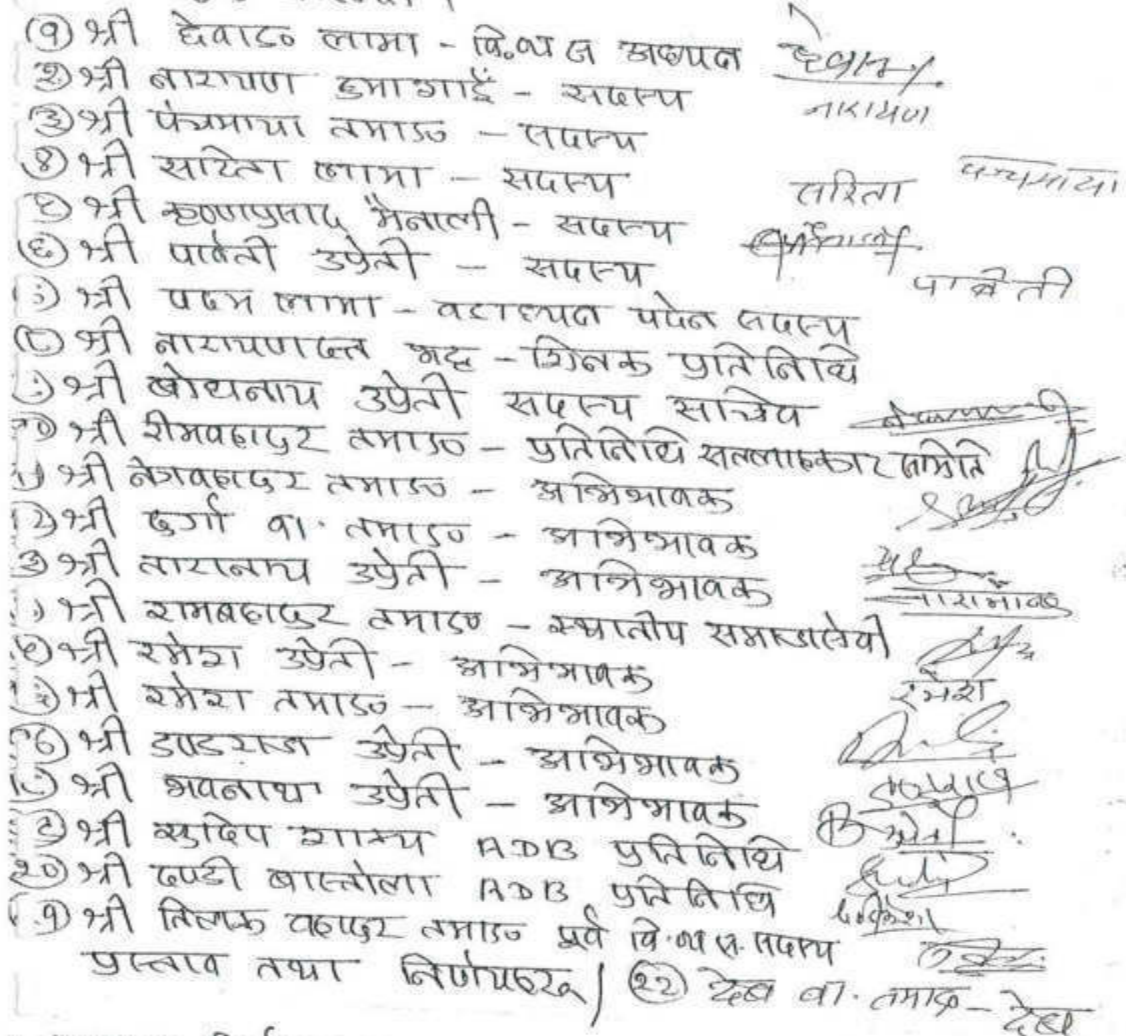 (१) श्री छेवाङ लामा - वि.व्य स अध्यक्ष
२) श्री नारायण हुमागाईं - सदस्य नारायण
(३) श्री पंचमाया तमाङ - सदस्य
(४) श्री सरिता लामा - सदस्य सरिता पञ्चमाया
५) श्री कृष्णप्रसाद मैनाली - सदस्य
(६) श्री पार्वती उप्रेती - सदस्य पार्वती
श्री पदम लामा - वडाध्यक्ष पदेन सदस्य
(८) श्री नारायणदत्त भट्ट - शिक्षक प्रतिनिधि
श्री बोधनाथ उप्रेती सदस्य सचिव
१०) श्री रीमबहादुर तमाङ - प्रतिनिधि सल्लाहकार समिति
१) श्री तेगबहादुर तमाङ - अभिभावक
२) श्री दुर्गा ब. तमाङ - अभिभावक
३) श्री तारानाथ उप्रेती - अभिभावक
) श्री रामबहादुर तमाङ - स्थानीय समाजसेवी तारानाथ
५) श्री रमेश उप्रेती - अभिभावक
) श्री रमेश तमाङ - अभिभावक रमेश
१७) श्री डण्डराज उप्रेती - अभिभावक
) श्री भवनाथ उप्रेती - अभिभावक
) श्री सुदिप शाक्य ADB प्रतिनिधि
२०) श्री दण्डी बास्तोला ADB प्रतिनिधि
(१) श्री तिलक बहादुर तमाङ पूर्व वि.व्य स. सदस्य
प्रस्ताव तथा निर्णयहरू / (२२) देब ब. तमाङ - देब